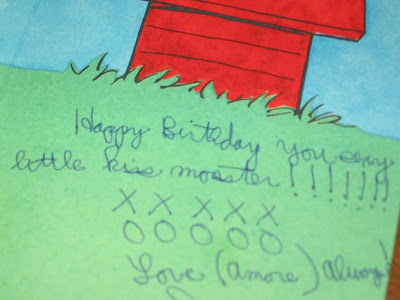 Happy Birthday you sexy
little kiss monster!!!!!!!
X X X X X
O O O O O
Love (amore) always!